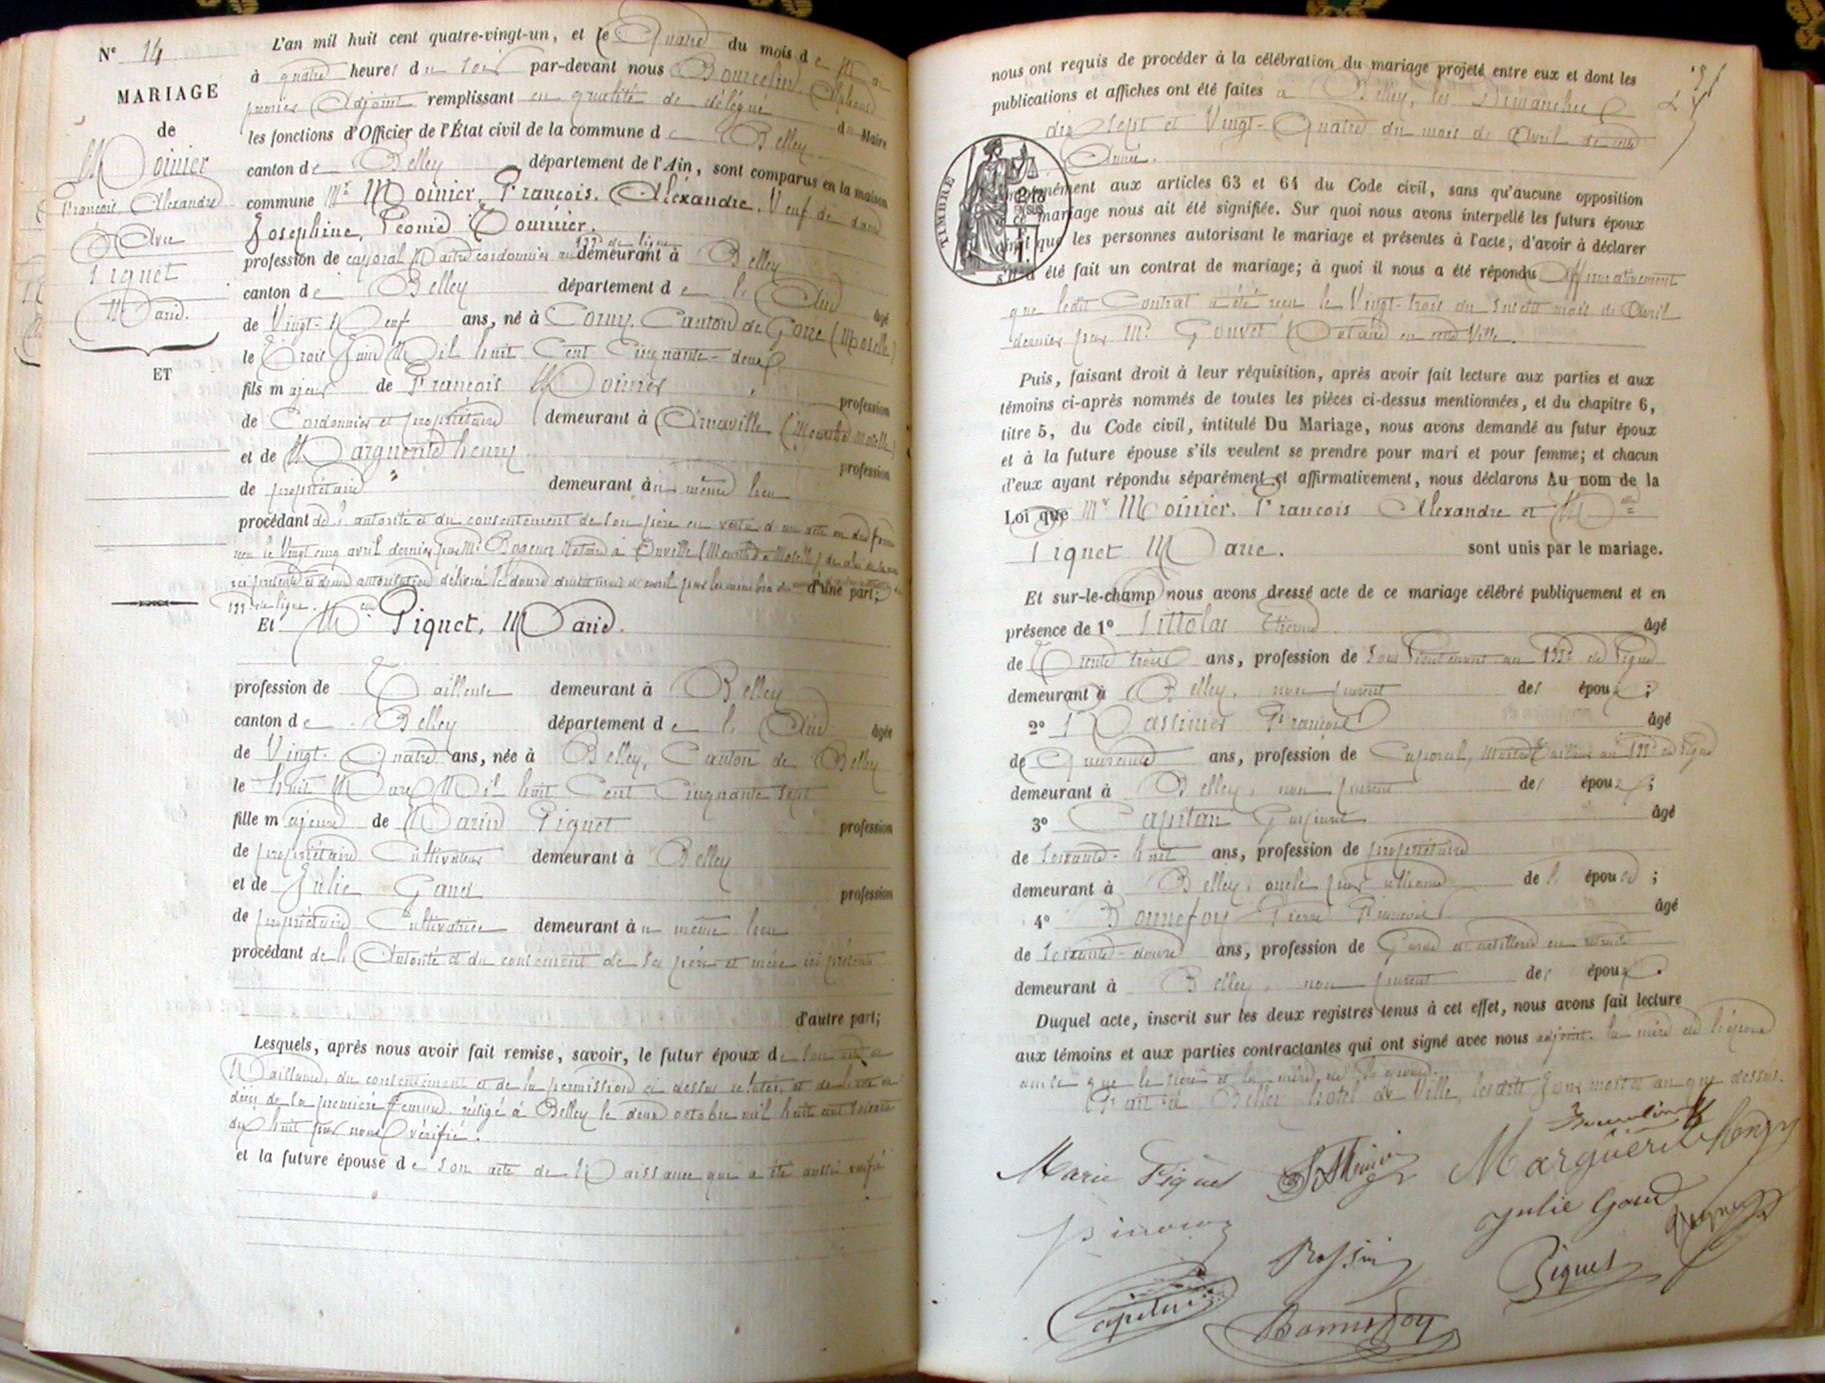 N° 14
MARIAGE
de
Moinier
François Alexandre
Avec
Piquet
Marie.
ET
L'an mil huit cent quatre-vingt-un, et le Quatre du mois de Mai
à quatre heures du soir par-devant nous Bourcelin
premier Adjoint remplissant en qualité de délégué du Maire
les fonctions d'Officier de l'État civil de la commune de Belley
canton de Belley département de l'Ain, sont comparus en la maison
commune Mr Moinier, François. Alexandre. Veuf de dame
Josephine, Léonie Tournier.
profession de caporal Maître cordonnier au 133e de ligne demeurant à Belley
canton de Belley département de l'Ain âgé
de Vingt-Neuf ans, né à Corny, Canton de Gorze (Moselle)
le Trois Juin Mil huit Cent Cinquante-deux
fils majeur de François Moinier profession
de Cordonnier et propriétaire demeurant à Arnaville (Meurthe Moselle)
et de Marguerite henry profession
de propriétaire demeurant à un même lieu
procédant de l'autorité et du consentement de son père en vertu d'un acte en due forme
reçu le Vingt cinq avril dernier par Me notaire à Onville (Meurthe & Moselle) de celui de la mère
ici présente et d'une autorisation délivrée le douze du dit mois d'avril par les membres du d'une part;
133e de ligne.
Et Mlle Piquet, Marie.
profession de Tailleuse demeurant à Belley
canton de Belley département de l'Ain âgée
de Vingt-Quatre ans, née à Belley, Canton de Belley
le huit Mars Mil huit Cent Cinquante sept
fille majeure de Marin Piquet profession
de propriétaire Cultivateur demeurant à Belley
et de Julie Gaud profession
de propriétaire Cultivatrice demeurant à un même lieu
procédant de l'Autorité et du consement de ses père et mère ici présents
d'autre part;
Lesquels, après nous avoir fait remise, savoir, le futur époux de son acte de
Naissance, du consentement et de la permission ci dessus relatés, et de l'acte de
décès de la première femme, rédigé à Belley le deux octobre mil huit cent soixante
dix huit par nous vérifié.
et la future épouse de son acte de Naissance que a été aussi vérifié
nous ont requis de procéder à la célébration du mariage projeté entre eux et dont les
publications et affiches ont été faites à Belley, les Dimanches
dix sept et Vingt-Quatre du mois de Avril de cette
Année.
TIMBRE
Conformément aux articles 63 et 64 du Code civil, sans qu'aucune opposition
à ce mariage nous ait été signifiée. Sur quoi nous avons interpellé les futurs époux
ainsi que les personnes autorisant le mariage et présentes à l'acte, d'avoir à déclarer
s'il a été fait un contrat de mariage; à quoi il nous a été répondu Affirmativement
que ledit Contrat a été reçu le Vingt-trois du susdit mois de Avril
dernier par Me Gouvet Notaire en cette Ville.
Puis, faisant droit à leur réquisition, après avoir fait lecture aux parties et aux
témoins ci-après nommés de toutes les pièces ci-dessus mentionnées, et du chapitre 6,
titre 5, du Code civil, intitulé Du Mariage, nous avons demandé au futur époux
et à la future épouse s'ils veulent se prendre pour mari et pour femme; et chacun
d'eux ayant répondu séparément et affirmativement, nous déclarons Au nom de la
Loi que Mr Moinier. François Alexandre et Mlle
Piquet Marie. sont unis par le mariage.
Et sur-le-champ nous avons dressé acte de ce mariage célébré publiquement et en
présence de 1° Littolas Etienne âgé
de Trente trois ans, profession de Sous Lieutenant au 133e de Ligne
demeurant à Belley, non parent des époux;
2° François âgé
de Quarante ans, profession de Caporal, Maître Tailleur au 133e de Ligne
demeurant à Belley, non parent des époux;
3° Capitan âgé
de Soixante-huit ans, profession de propriétaire
demeurant à Belley, oncle par alliance de l'épouse;
4° Bonnefoy Pierre François âgé
de Soixante-douze ans, profession de Garde d'artillerie en retraite
demeurant à Belley, non parent des époux.
Duquel acte, inscrit sur les deux registres tenus à cet effet, nous avons fait lecture
aux témoins et aux parties contractantes qui ont signé avec nous adjoint. la mère de l'époux
ainsi que le père et la mère de l'épouse.
Fait à Belley hotel de Ville, lesdits Jour mois et an que dessus.
Bourcelin
Marie Piquet
Marguerite henry
Julie Gaud
Capitan
Bonnefoy
Piquet